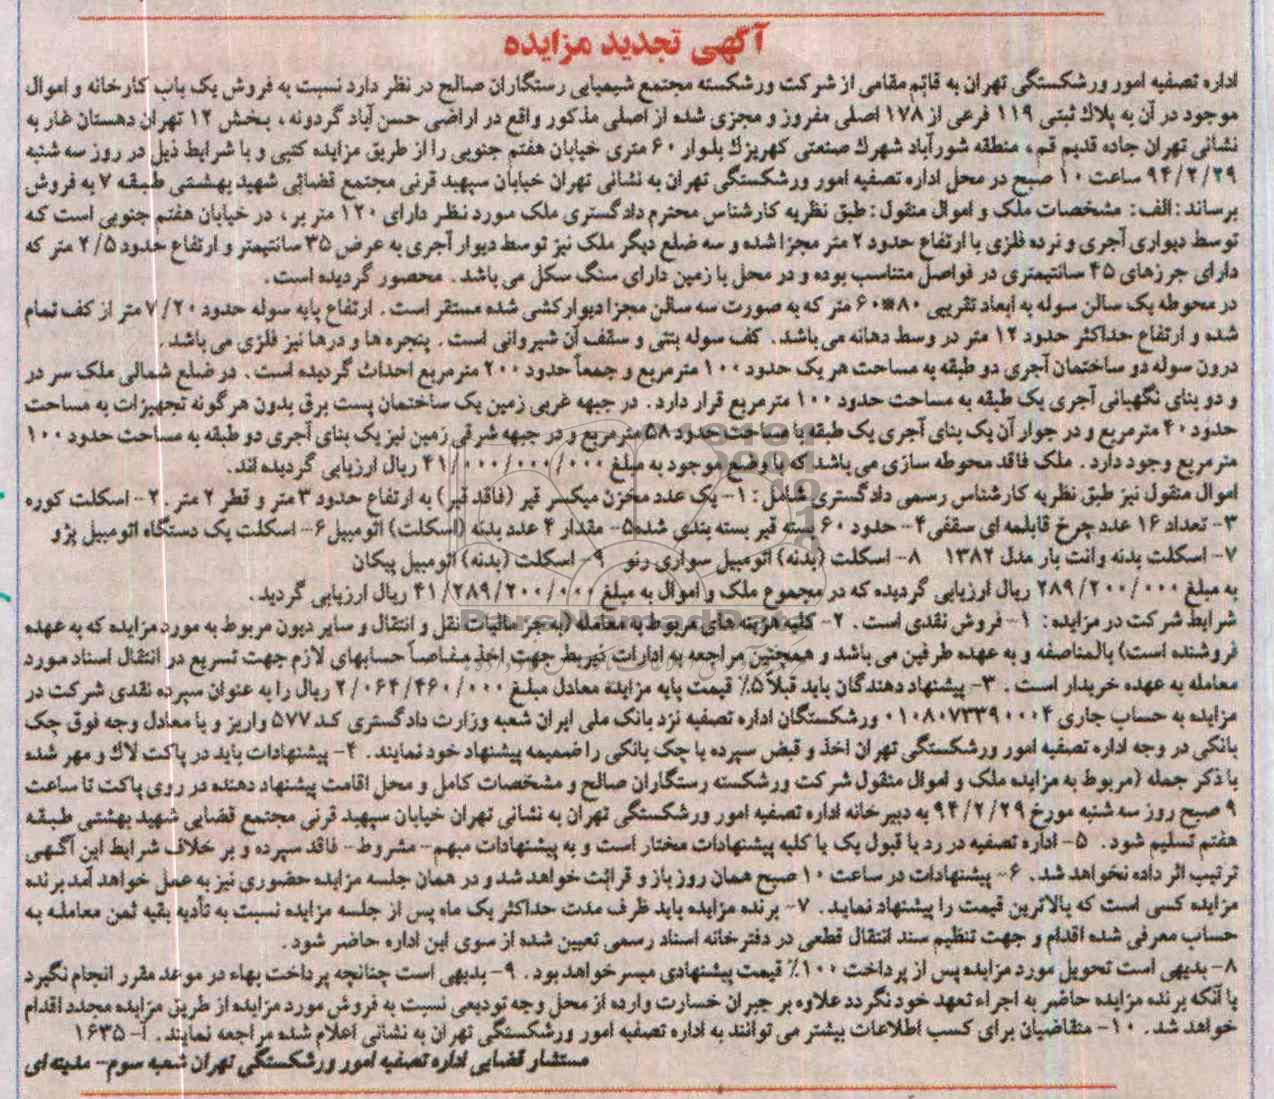 آگهی تجدید مزایده
اداره تصفیه امور ورشکستگی تهران به قائم مقامی از شرکت ورشکسته مجتمع شیمیایی رستگاران صالح در نظر دارد نسبت به فروش یک باب کارخانه و اموال
موجود در آن به پلاک ثبتی ۱۱۹ فرعی از ۱۷۸ اصلی مفروز و مجزی شده از اصلی مذکور واقع در اراضی حسن آباد گردونه، بخش ۱۲ تهران دهستان غار به
نشانی تهران جاده قدیم قم، منطقه شورآباد شهرک صنعتی کهریزک بلوار ۶۰ متری خیابان هفتم جنوبی را از طریق مزایده کتبی و با شرایط ذیل در روز سه شنبه
۹۴/۲/۲۹ ساعت ۱۰ صبح در محل اداره تصفیه امور ورشکستگی تهران به نشانی تهران خیابان سپهبد قرنی مجتمع قضائی شهید بهشتی طبقه ۷ به فروش
برساند: الف: مشخصات ملک و اموال منقول: طبق نظریه کارشناس محترم دادگستری ملک مورد نظر دارای ۱۲۰ متر بر، در خیابان هفتم جنوبی است که
توسط دیواری آجری و نرده فلزی با ارتفاع حدود ۲ متر مجزا شده و سه ضلع دیگر ملک نیز توسط دیوار آجری به عرض ۳۵ سانتیمتر و ارتفاع حدود ۲/۵ متر که
دارای جرزهای ۴۵ سانتیمتری در فواصل متناسب بوده و در محل با زمین دارای سنگ سکل می باشد. محصور گردیده است.
در محوطه یک سالن سوله به ابعاد تقریبی ۸۰*۶۰ متر که به صورت سه سالن مجزا دیوارکشی شده مستقر است. ارتفاع پایه سوله حدود ۷/۲۰ متر از کف تمام
شده و ارتفاع حداکثر حدود ۱۲ متر در وسط دهانه می باشد. کف سوله بتنی و سقف آن شیروانی است. پنجره ها و درها نیز فلزی می باشد.
درون سوله دو ساختمان آجری دو طبقه به مساحت هر یک حدود ۱۰۰ مترمربع و جمعاً حدود ۲۰۰ مترمربع احداث گردیده است. در ضلع شمالی ملک سر در
و دو بنای نگهبانی آجری یک طبقه به مساحت حدود ۱۰۰ مترمربع قرار دارد. در جبهه غربی زمین یک ساختمان پست برق بدون هرگونه تجهیزات به مساحت
حدود ۴۰ مترمربع و در جوار آن یک بنای آجری یک طبقه با مساحت حدود ۵۸ مترمربع و در جبهه شرقی زمین نیز یک بنای آجری دو طبقه به مساحت حدود ۱۰۰
مترمربع وجود دارد. ملک فاقد محوطه سازی می باشد که با وضع موجود به مبلغ ۴۱/۰۰۰/۰۰۰/۰۰۰ ریال ارزیابی گردیده اند.
اموال منقول نیز طبق نظریه کارشناس رسمی دادگستری شامل: ۱- یک عدد مخزن میکسر قیر (فاقد قیر) به ارتفاع حدود ۳ متر و قطر ۲ متر. ۲- اسکلت کوره
۳- تعداد ۱۶ عدد چرخ قابلمه ای سقفی ۴- حدود ۶۰ بسته قیر بسته بندی شده ۵- مقدار ۴ عدد بدنه (اسکلت) اتومبیل ۶- اسکلت یک دستگاه اتومبیل پژو
۷- اسکلت بدنه وانت بار مدل ۱۳۸۲ ۸- اسکلت (بدنه) اتومبیل سواری رنو ۹- اسکلت (بدنه) اتومبیل پیکان
به مبلغ ۲۸۹/۲۰۰/۰۰۰ ریال ارزیابی گردیده که در مجموع ملک و اموال به مبلغ ۴۱/۲۸۹/۲۰۰/۰۰۰ ریال ارزیابی گردید.
شرایط شرکت در مزایده: ۱- فروش نقدی است. ۲- کلیه هزینه های مربوط به معامله (به جز مالیات نقل و انتقال و سایر دیون مربوط به مورد مزایده که به عهده
فروشنده است) بالمناصفه و به عهده طرفین می باشد و همچنین مراجعه به ادارات ذیربط جهت اخذ مفاصاً حسابهای لازم جهت تسریع در انتقال اسناد مورد
معامله به عهده خریدار است. ۳- پیشنهاد دهندگان باید قبلاً ۵٪ قیمت پایه مزایده معادل مبلغ ۲/۰۶۴/۴۶۰/۰۰۰ ریال را به عنوان سپرده نقدی شرکت در
مزایده به حساب جاری ۰۱۰۸۰۷۳۳۹۰۰۰۴ ورشکستگان اداره تصفیه نزد بانک ملی ایران شعبه وزارت دادگستری کد ۵۷۷ واریز و یا معادل وجه فوق چک
بانکی در وجه اداره تصفیه امور ورشکستگی تهران اخذ و قبض سپرده یا چک بانکی را ضمیمه پیشنهاد خود نمایند. ۴- پیشنهادات باید در پاکت لاک و مهر شده
با ذکر جمله (مربوط به مزایده ملک و اموال منقول شرکت ورشکسته رستگاران صالح و مشخصات کامل و محل اقامت پیشنهاد دهنده در روی پاکت تا ساعت
۹ صبح روز سه شنبه مورخ ۹۴/۲/۲۹ به دبیرخانه اداره تصفیه امور ورشکستگی تهران به نشانی تهران خیابان سپهبد قرنی مجتمع قضایی شهید بهشتی طبقه
هفتم تسلیم شود. ۵- اداره تصفیه در رد یا قبول یک یا کلیه پیشنهادات مختار است و به پیشنهادات مبهم- مشروط- فاقد سپرده و بر خلاف شرایط این آگهی
ترتیب اثر داده نخواهد شد. ۶- پیشنهادات در ساعت ۱۰ صبح همان روز باز و قرائت خواهد شد و در همان جلسه مزایده حضوری نیز به عمل خواهد آمد برنده
مزایده کسی است که بالاترین قیمت را پیشنهاد نماید. ۷- برنده مزایده باید ظرف مدت حداکثر یک ماه پس از جلسه مزایده نسبت به تأدیه بقیه ثمن معامله به
حساب معرفی شده اقدام و جهت تنظیم سند انتقال قطعی در دفترخانه اسناد رسمی تعیین شده از سوی این اداره حاضر شود.
۸- بدیهی است تحویل مورد مزایده پس از پرداخت ۱۰۰٪ قیمت پیشنهادی میسر خواهد بود. ۹- بدیهی است چنانچه پرداخت بهاء در موعد مقرر انجام نگیرد
یا آنکه برنده مزایده حاضر به اجراء تعهد خود نگردد علاوه بر جبران خسارت وارده از محل وجه تودیعی نسبت به فروش مورد مزایده از طریق مزایده مجدد اقدام
خواهد شد. ۱۰- متقاضیان برای کسب اطلاعات بیشتر می توانند به اداره تصفیه امور ورشکستگی تهران به نشانی اعلام شده مراجعه نمایند. آ- ۱۶۳۵
مستشار قضایی اداره تصفیه امور ورشکستگی تهران شعبه سوم- مدینه ای